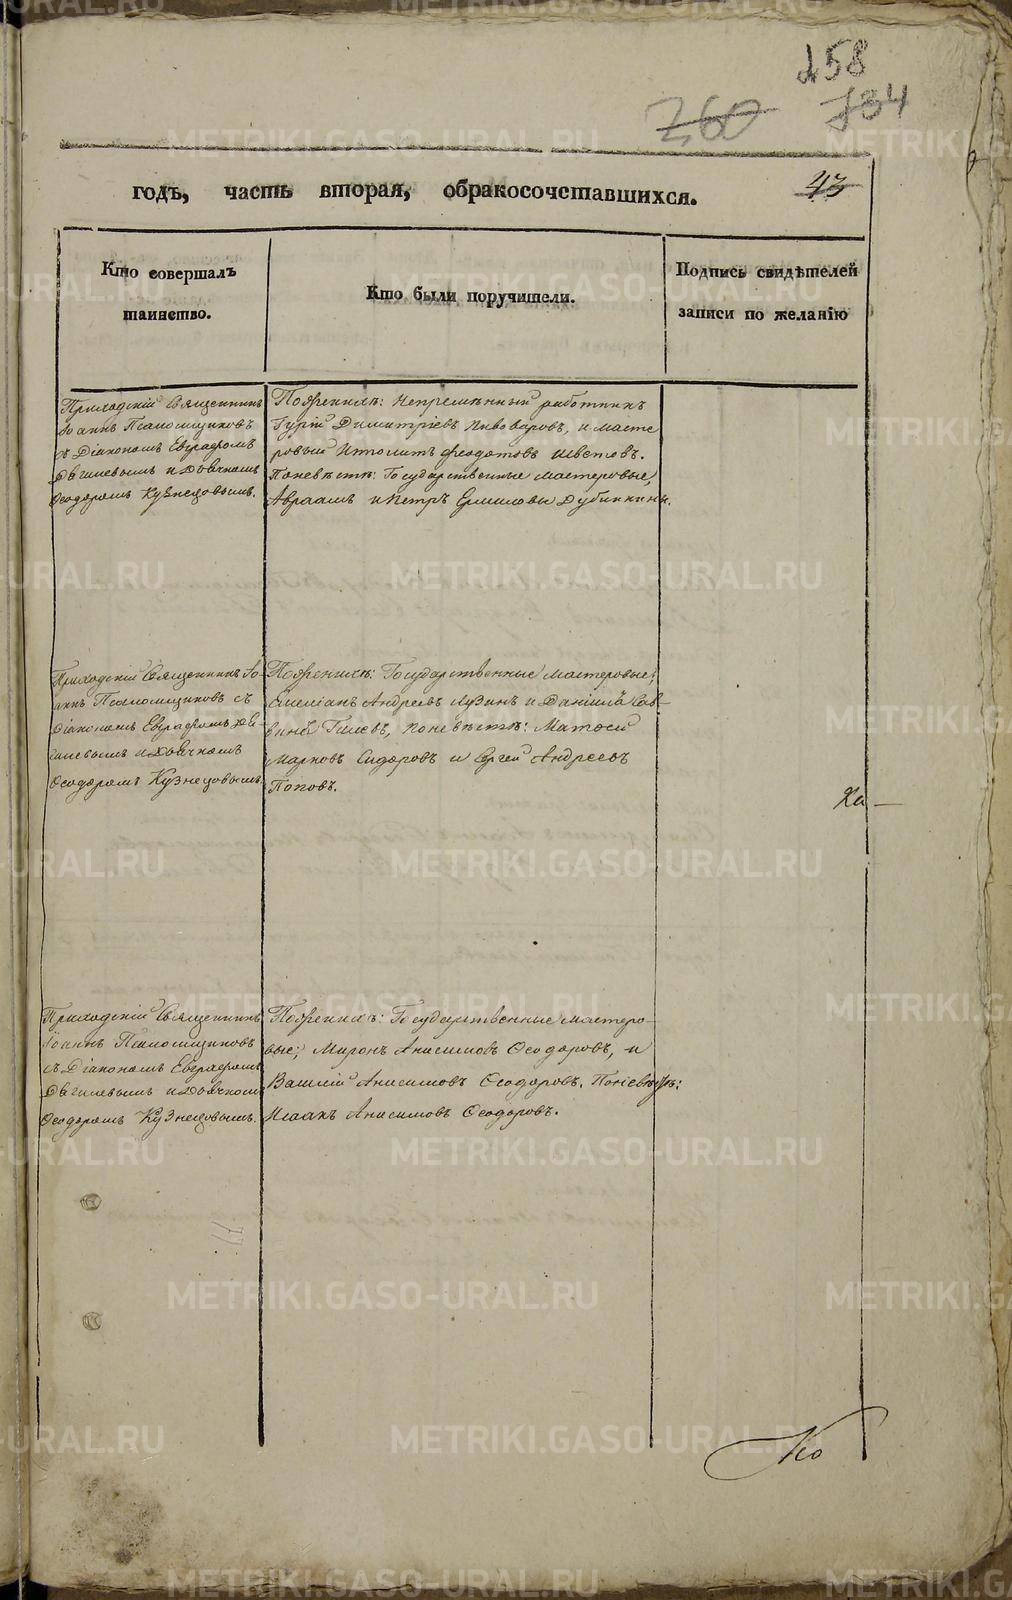 158
760
734
годъ, часть вторая, обракосочетавшихся.
43
Кто совершалъ
таинство.
Кто были поручители.
Подпись свидѣтелей
записи по желанію
Приходскій Священникъ
Іоаннъ Псаломщиковъ
съ Діакономъ Евграфомъ
Дягилевымъ и Дьячкомъ
Ѳеодоромъ Кузнецовымъ.
Поженихѣ: Непремѣнный работникъ
Гурій Димитріевъ Пивоваровъ, и масте
ровый Иполитъ Ѳеодотовъ Швецовъ.
Поневѣстѣ: Государственные мастеровые,
Авраамъ и Петръ Ермиловы Дубинкины.
Приходскій Священникъ Іо-
аннъ Псаломщиковъ съ
Діакономъ Евграфомъ Дя-
гилевымъ и Дьячкомъ
Ѳеодоромъ Кузнецовымъ.
Поженихѣ: Государственные мастеровые;
Емеліанъ Андреевъ Лузинъ и Даніилъ Сав-
винъ Гилевъ, поневѣстѣ: Матѳей
Марковъ Сидоровъ и Сергей Андреевъ
Поповъ.
Ка
Приходскій Священникъ
Іоаннъ Псаломщиковъ
съ Діакономъ Евграфомъ
Дягилевымъ и Дьячкомъ
Ѳеодоромъ Кузнецовымъ.
Поженихѣ: Государственные мастеро-
вые; Миронъ Анисимовъ Ѳеодоровъ, и
Василій Анисимовъ Ѳеодоровъ. Поневѣстѣ:
Исаакъ Анисимовъ Ѳеодоровъ.
METRIKI.GASO-URAL.RU